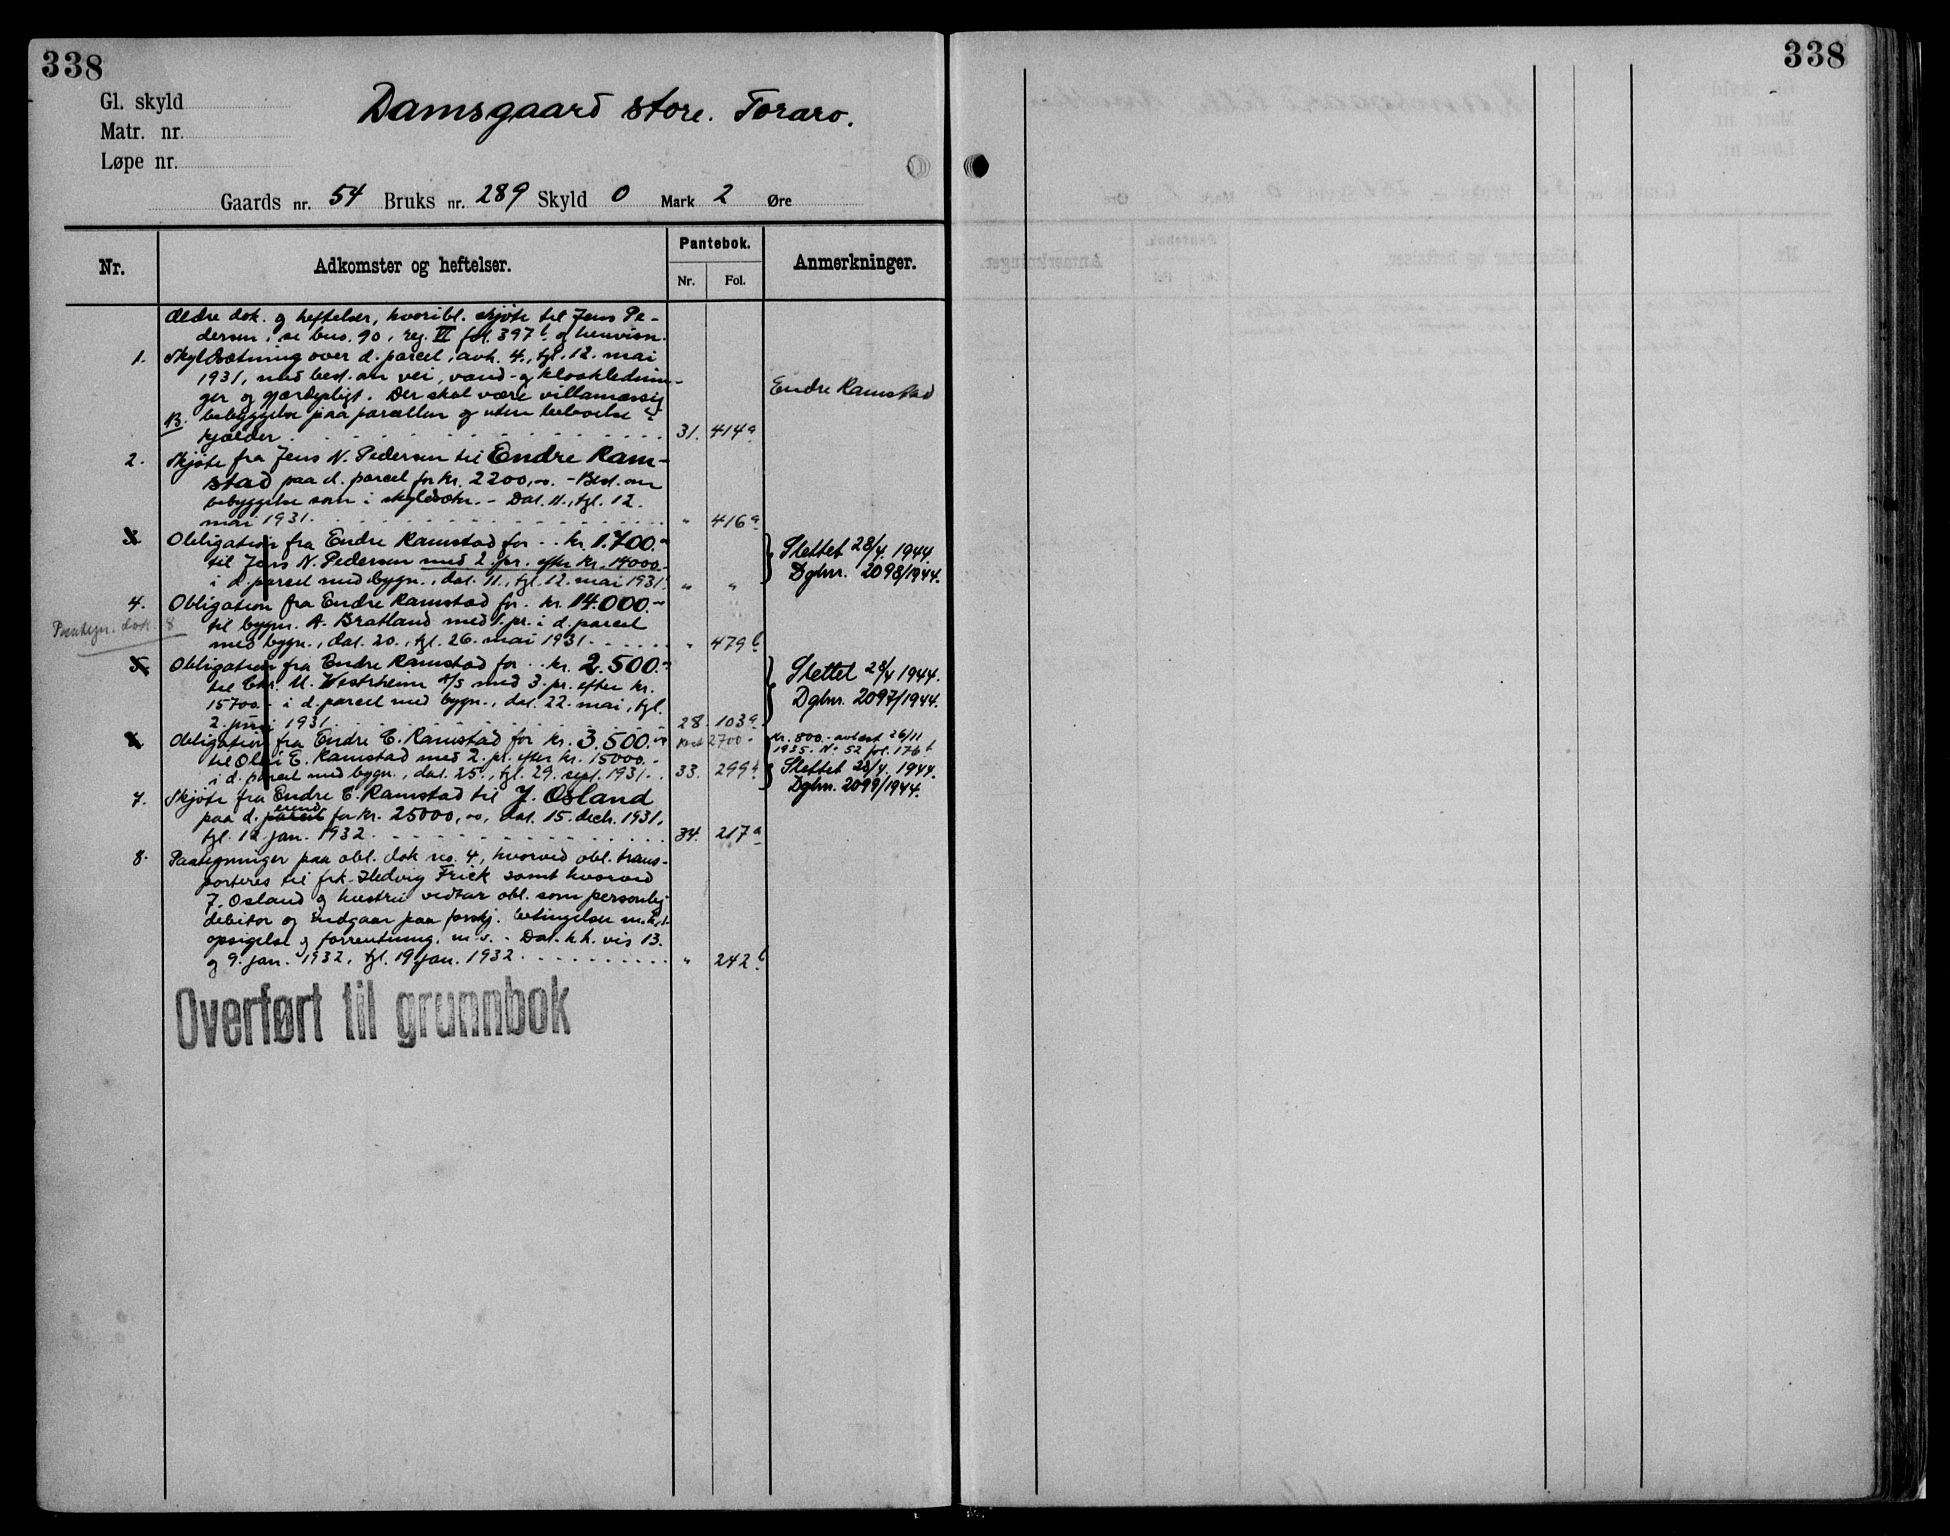 338
338
Gl. skyld
Matr. nr.
Løpe nr.
Damsgaard store. Toraro.
Gaards nr. 54 Bruks nr. 289 Skyld 0 Mark 2 Øre
Nr.
Adkomster og heftelser.
Pantebok.
Nr. Fol.
Anmerkninger.
Ældre dok. og heftelser, hvoribl. skjøte til Jens Pe-
dersen, se brs. 90, reg. VI fol. 397b og henvisn.
1. Skyldsætning over d. parcel, avh. 4., tgl. 12. mai
1931, med best. om vei, vand- og kloakklednin-
ger og gjærdepligt. Der skal være villamæssig
bebyggelse paa parcellen og uten beboelse i
B. kjælder 31. 414a
Endre Ramstad
2. Skjøte fra Jens N. Pedersen til Endre Ram-
stad paa d. parcel for kr. 2200,00. - Best. om
bebyggelse som i skyldsætn. - Dat. 11., tgl. 12.
mai 1931. " 416a
3. Obligation fra Endre Ramstad for kr. 1.700.-
til Jens N. Pedersen med 2. pr. efter kr. 14000.-
i d. parcel med bygn., dat. 11., tgl. 12. mai 1931. " "
Slettet 28/4. 1944.
Dgbnr. 2098/1944.
4. Obligation fra Endre Ramstad for kr. 14.000.-
til bygm. A. Bratland med 1. pr. i d. parcel
med bygn., dat. 20., tgl. 26. mai 1931. " 479b
dok. 8
5. Obligation fra Endre Ramstad for kr. 2.500.-
til Chr. M. Vestrheim A/S med 3. pr. efter kr.
15700.- i d. parcel med bygn., dat. 22. mai, tgl.
2. juni 1931 28. 103a
Slettet 28/4 1944.
Dgbnr. 2097/1944.
Obligation fra Endre E. Ramstad for kr. 3.500.-
til Olai E. Ramstad med 2. pr. efter kr. 15000.-
i d. parcel med bygn., dat. 25., tgl. 29. sept. 1931. 33. 299b
Rest 2700.-
kr. 800.- avlæst 26/11
1935. No 52 fol. 176b
Slettet 28/4. 1944.
Dgbnr. 2099/1944.
7. Skjøte fra Endre E. Ramstad til J. Osland
paa d. parcel eiend. for kr. 25000,00, dat. 15. decb. 1931,
tgl. 12. jan. 1932 34. 217a
8. Paategninger paa obl. dok no. 4, hvorved obl. trans-
porteres til frk. Hedvig Frick samt hvorved
J. Osland og hustru vedtar obl. som personlig
debitor og indgaar paa forskj. betingelser m.h.t.
opsigelse og forrentning m.v. - Dat. h.h. vis 13.
og 9. jan. 1932, tgl. 19. jan. 1932 " 242b
Overført til grunnbok